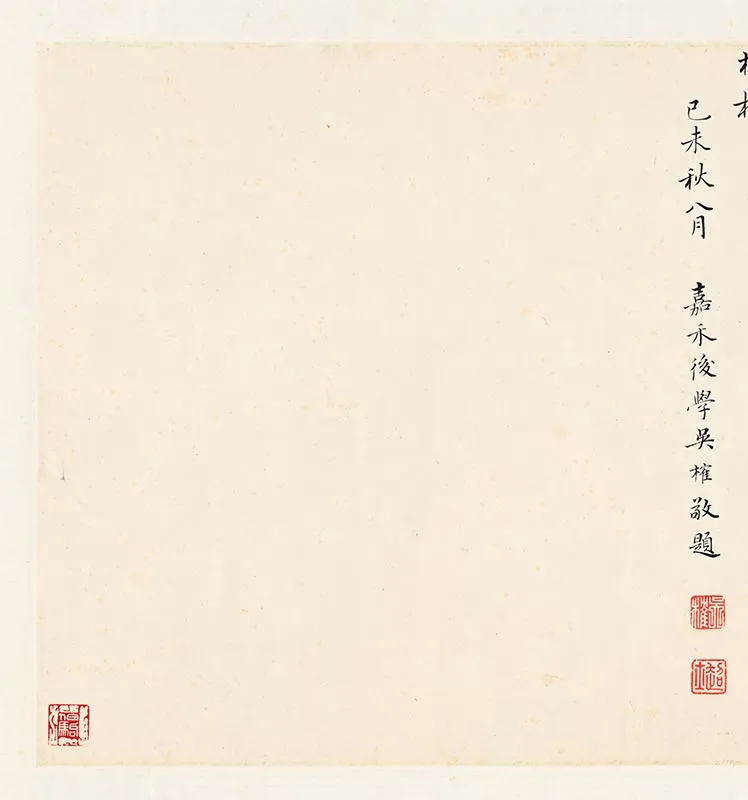 己未秋八月 嘉禾後學吳榷敬題